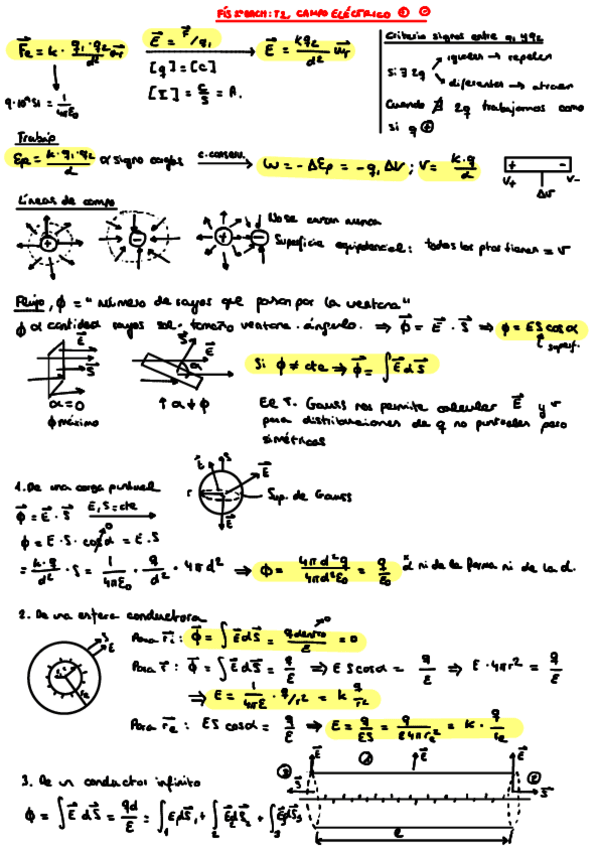 FÍS 2ºBACH: T2. CAMPO ELÉCTRICO
Fe = k · q₁·q₂/d² ur
E = F/q₁ → E = kq₂/d² ur
Criterio signos entre q₁ y q₂
9·10⁹ SI = 1/4πε₀
[q] = [C]
[I] = C/S = A.
Si ∃ 2q
iguales → repelen
diferentes → atraen
Cuando ∄ 2q trabajamos como
si q ⊕
Trabajo
Ep = k·q₁·q₂/d α signo cargas → W = -ΔEp = -q₁ΔV ; V = k·q/d
+ -
V+ ΔV V-
Líneas de campo
No se cruzan nunca
Superficie equipotencial: todos los ptos tienen = V
Flujo, ϕ = "número de rayos que pasan por la ventana"
ϕ α cantidad rayos sol · tamaño ventana · ángulo. ⇒ ϕ = E · S ⇒ ϕ = ES cosα
superf.
E S
α = 0
ϕ máximo
S E α
↑ α ↓ ϕ
Si ϕ ≠ cte ⇒ ϕ = ∫ E dS
El T. Gauss nos permite calcular E y V
para distribuciones de q no puntuales pero
simétricas
1. De una carga puntual
ϕ = E · S E, S = cte →
ϕ = E · S · cosα = E · S
r E S E E Sup. de Gauss
= k·q/d² · S = 1/4πε₀ · q/d² · 4πd² ⇒ ϕ = 4πd²q/4πd²ε₀ = q/ε₀ ni de la forma ni de la d.
2. De una esfera conductora
Para ri : ϕ = ∫ E dS = q dentro/ε = 0
Para r : ϕ = ∫ E dS = q/ε ⇒ E S cosα = q/ε ⇒ E · 4πr² = q/ε
⇒ E = 1/4πε · q/r² = k q/r²
Para re : ES cosα = q/ε ⇒ E = q/εS = q/ε4πre² = k · q/re
3. De un conductor infinito
ϕ = ∫ E dS = qd/ε = ∫₁ E₁dS₁ + ∫₂ E₂dS₂ + ∫₃ E₃dS₃